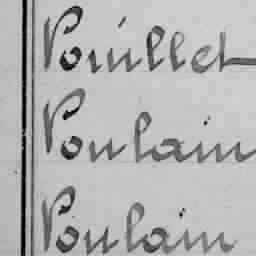 Pouillet
Poulain
Poulain